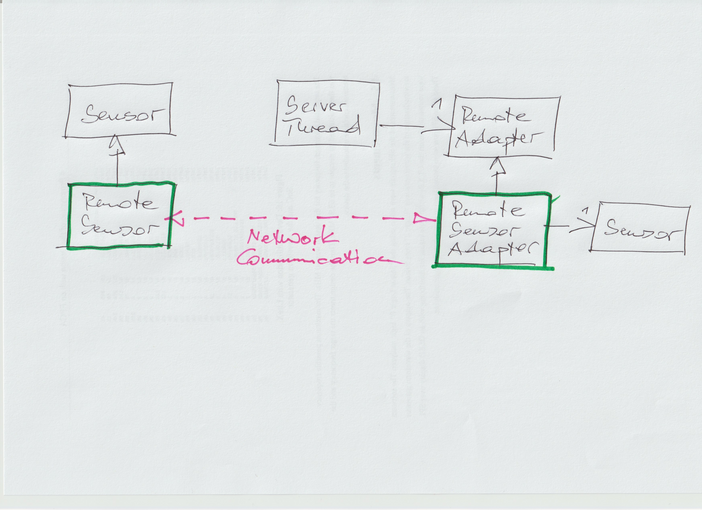 Sensor
Server
Thread
1
Remote
Adapter
Remote
Sensor
Network
Communication
Remote
Sensor
Adapter
1
Sensor